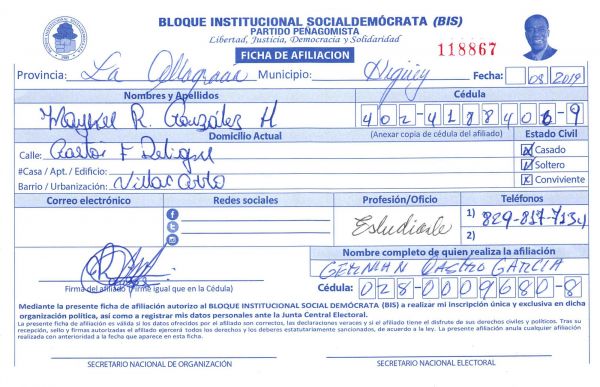 BLOQUE INSTITUCIONAL SOCIALDEMÓCRATA (BIS)
PARTIDO PEÑAGOMISTA
Libertad, Justicia, Democracia y Solidaridad
FICHA DE AFILIACION
118867
Provincia: La Municipio: Higüey Fecha: 08 2019
Nombres y Apellidos Cédula
R. González H 402-4188406-9
Domicilio Actual (Anexar copia de cédula del afiliado) Estado Civil
Calle: F Deligne Casado
#Casa / Apt. / Edificio: Soltero
Barrio / Urbanización: Villa Conviviente
Correo electrónico Redes sociales Profesión/Oficio Teléfonos
Estudiante 1) 829-817-7134
2)
Nombre completo de quien realiza la afiliación
GERMAN CASTRO GARCIA
Firma del afiliado (Firme igual que en la Cédula) Cédula: 028-0009680-8
Mediante la presente ficha de afiliación autorizo al BLOQUE INSTITUCIONAL SOCIAL DEMÓCRATA (BIS) a realizar mi inscripción única y exclusiva en dicha
organización política, así como a registrar mis datos personales ante la Junta Central Electoral.
La presente ficha de afiliación es válida si los datos ofrecidos por el afiliado son correctos, las declaraciones veraces y si el afiliado tiene el disfrute de sus derechos civiles y políticos. Tras su
recepción, sello y firmas autorizadas el afiliado ejercerá todos los derechos y los deberes estatutariamente sancionados, de acuerdo a la ley. La presente anula cualquier afiliación
realizada con anterioridad a la fecha que aparece en esta ficha.
SECRETARIO NACIONAL DE ORGANIZACIÓN SECRETARIO NACIONAL ELECTORAL